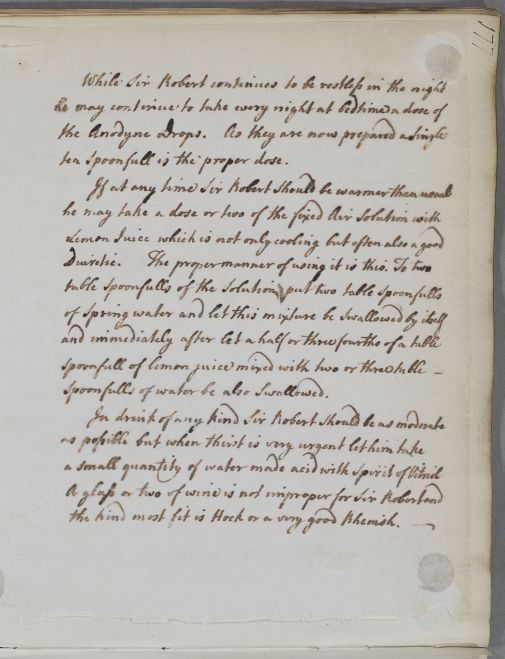 177
While Sir Robert continues to be restless in the night
he may continue to take every night at bedtime a dose of
the Anodyne Drops. As they are now prepared a single
tea spoonfull is the proper dose.
If at any time Sir Robert should be warmer than usual
he may take a dose or two of the fixed Air Solution with
Lemon Juice which is not only cooling but often also a good
Diuretic. The proper manner of using it is this. To two
table spoonfulls of the Solution put two table spoonfulls
of spring water and let this mixture be swallowed by itself
and immediately after let a half or three fourths of a table
spoonfull of lemon juice mixed with two or three table -
spoonfulls of water be also swallowed.
In drink of any kind Sir Robert should be as moderate
as possible but when thirst is very urgent let him take
a small quantity of water made acid with Spirit of Vitriol
A glass or two of wine is not improper for Sir Robert and
the kind most fit is Hock or a very good Rhenish. —